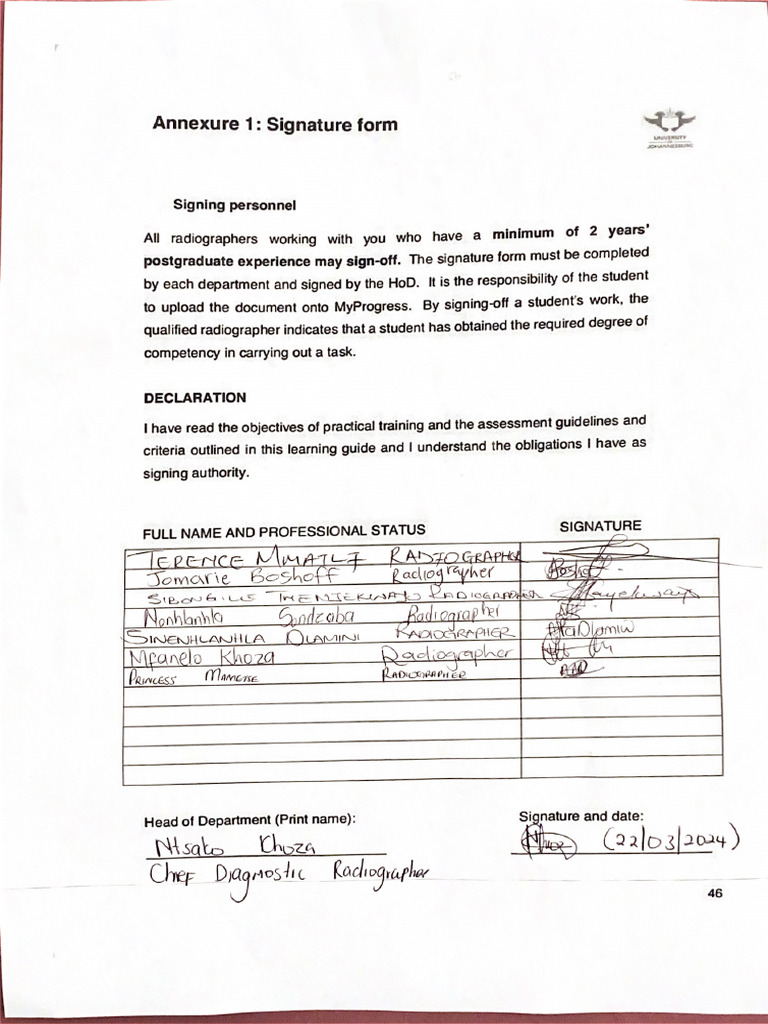 Annexure 1: Signature form
UNIVERSITY
OF
JOHANNESBURG
Signing personnel
All radiographers working with you who have a minimum of 2 years'
postgraduate experience may sign-off. The signature form must be completed
by each department and signed by the HoD. It is the responsibility of the student
to upload the document onto MyProgress. By signing-off a student's work, the
qualified radiographer indicates that a student has obtained the required degree of
competency in carrying out a task.
DECLARATION
I have read the objectives of practical training and the assessment guidelines and
criteria outlined in this learning guide and I understand the obligations I have as
signing authority.
FULL NAME AND PROFESSIONAL STATUS SIGNATURE
TERENCE MMATLI RADIOGRAPHER
Jomarie Boshoff Radiographer Boshoff
SIBONGILE RADIOGRAPHER
Nonhlanhla Radiographer
SINENHLANHLA DLAMINI RADIOGRAPHER Dlamini
Mfanelo Khoza Radiographer
PRINCESS RADIOGRAPHER
Head of Department (Print name): Signature and date:
Ntsako Khoza (22/03/2024)
Chief Diagnostic Radiographer
46